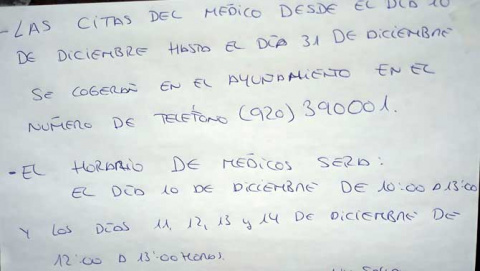 - LAS CITAS DEL MEDICO DESDE EL DÍA 10
DE DICIEMBRE HASTA EL DÍA 31 DE DICIEMBRE
SE COGERÁN EN EL AYUNTAMIENTO EN EL
NÚMERO DE TELÉFONO (920) 390001.
- EL HORARIO DE MEDICOS SERA:
EL DÍA 10 DE DICIEMBRE DE 10:00 A 13:00
Y LOS DÍAS 11, 12, 13 y 14 DE DICIEMBRE DE
12:00 A 13:00 HORAS.